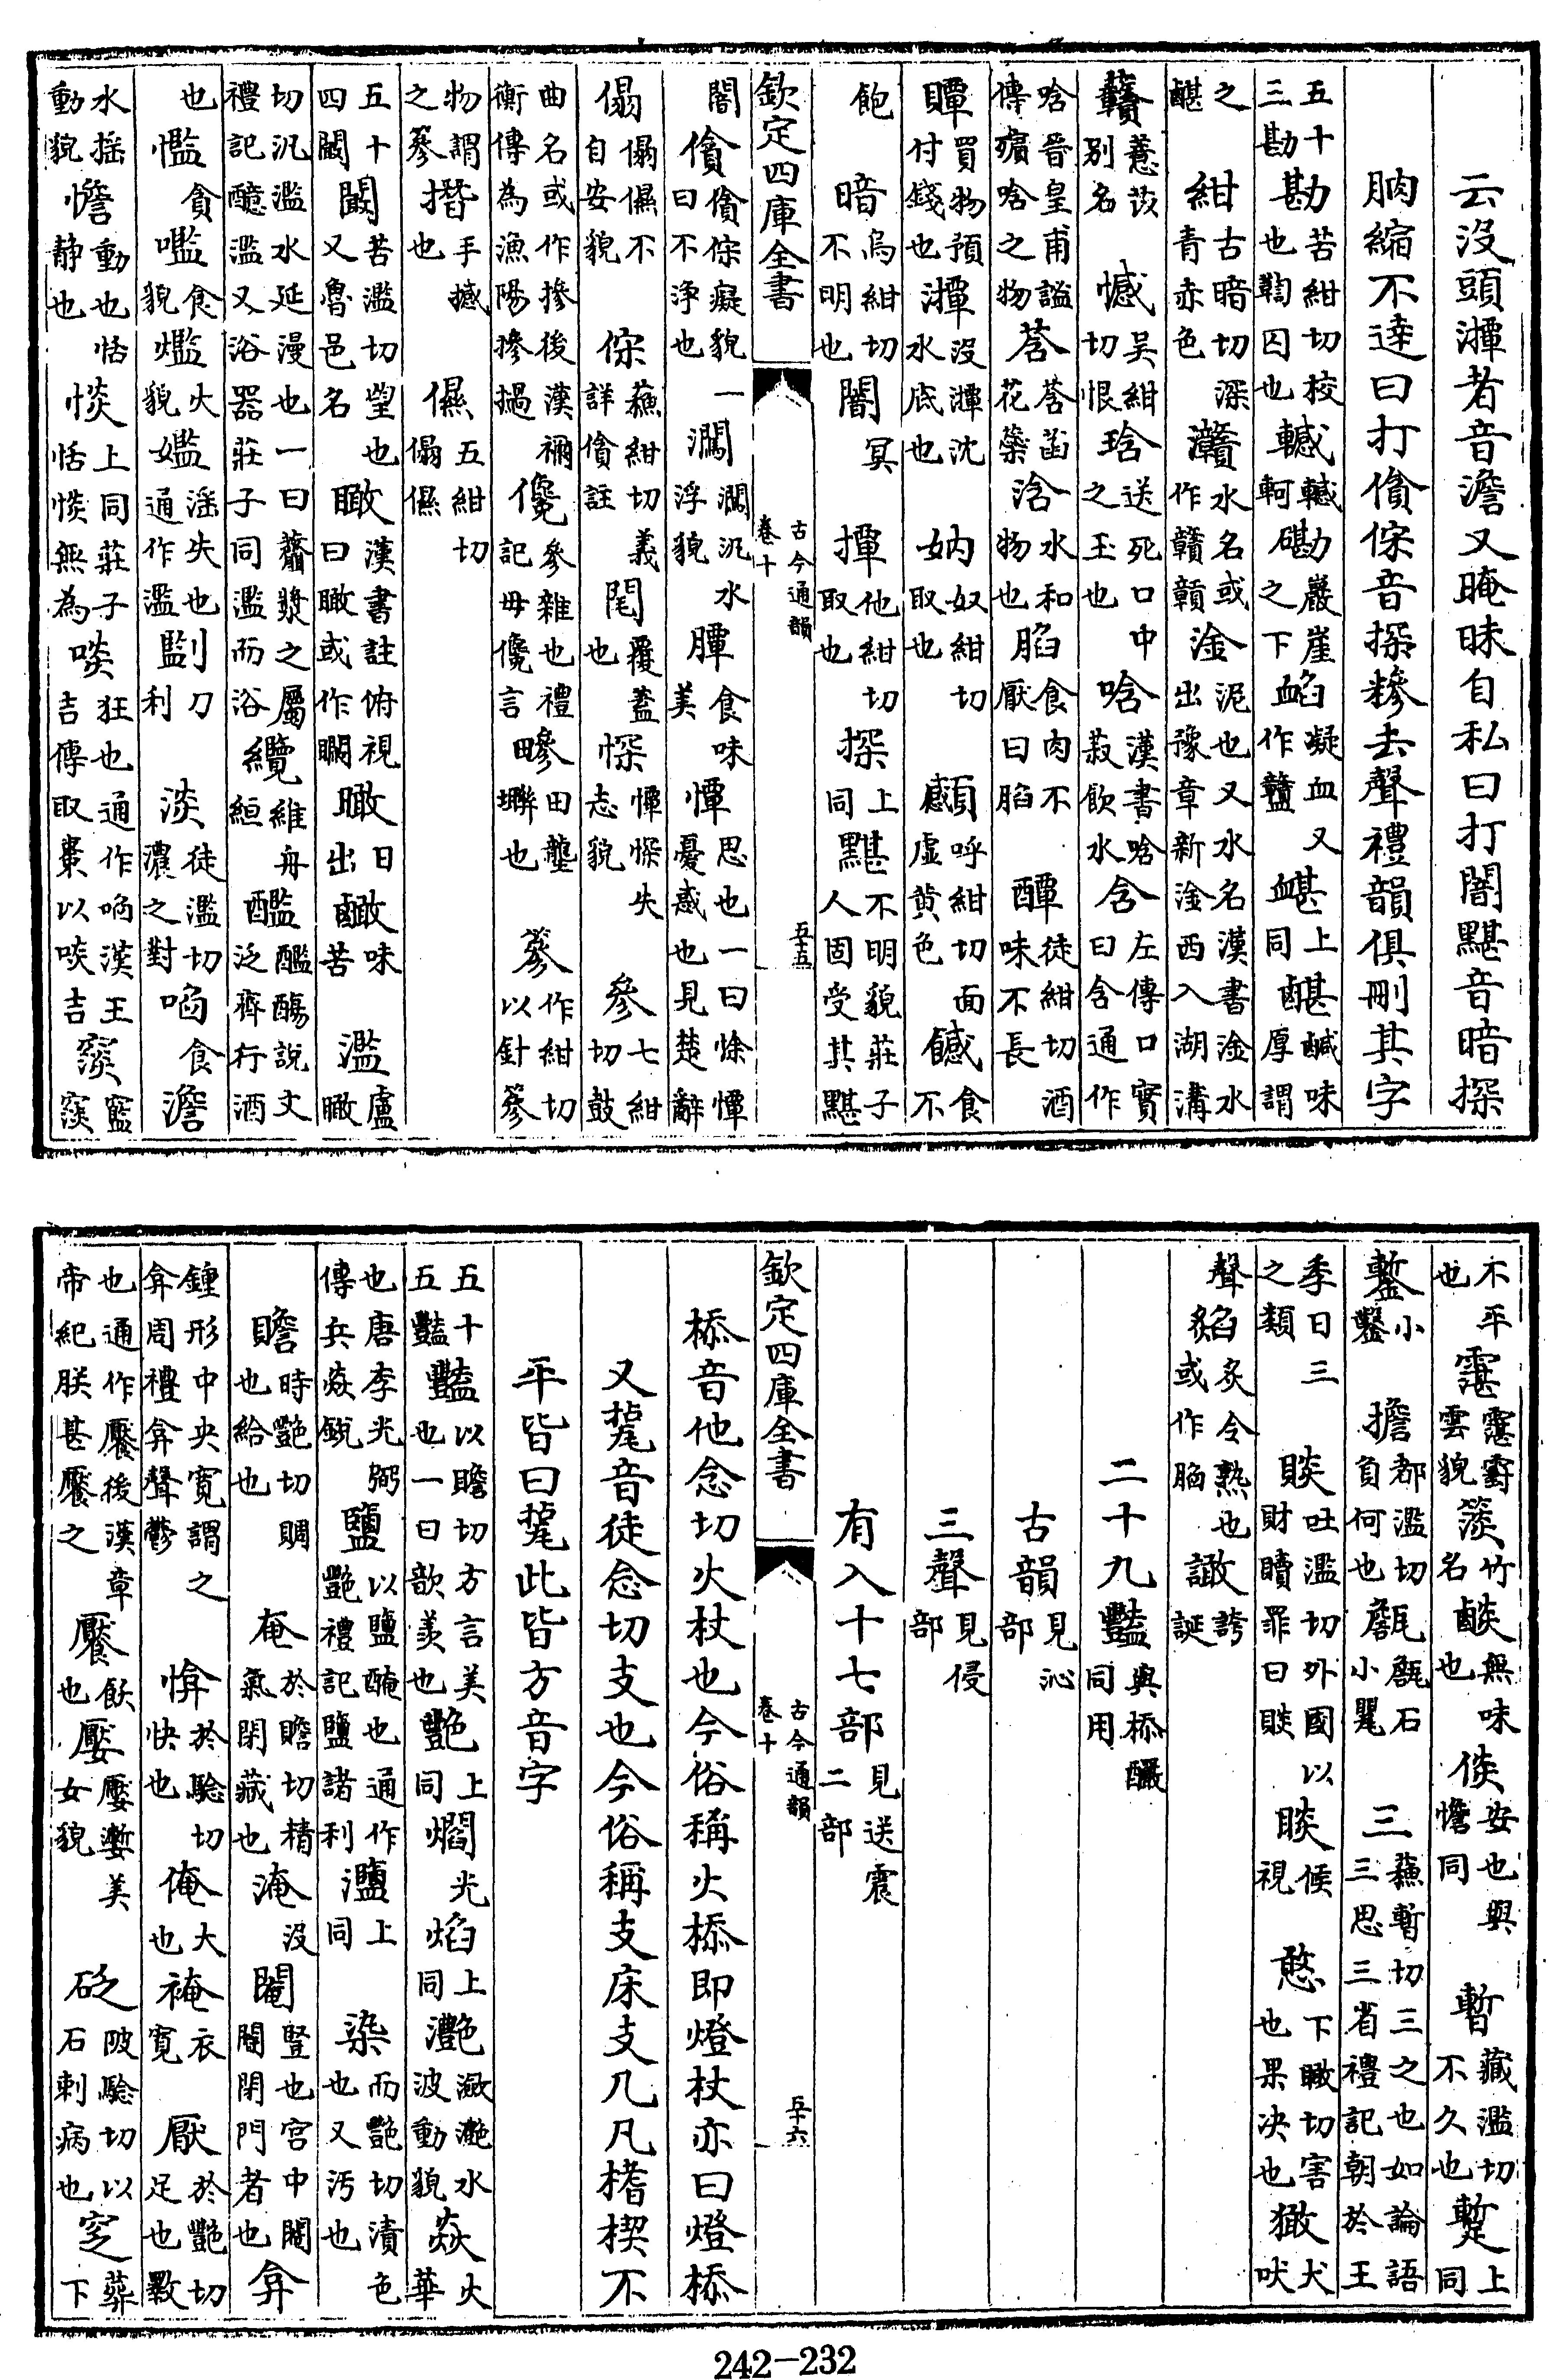 云没頭潬者音澹又晻昧自私曰打闇黮音暗探
朒縮不達曰打儑倧音探糝去聲禮韻俱刪其字
五十三勘 勘苦紺切校也鞫囚也 轗轗軻 磡巖崖之下 衉凝血又作䘓 䘓上同 鹹味厚謂
之醎 紺古暗切深青赤色 灨水名或作贛贑 淦泥也又水名漢書淦水出豫章新淦西入湖溝
贛薏苡别名 憾吴紺切恨 琀送死口中之玉也 唅漢書唅菽飲水 含左傳口實曰含通作
唅晉皇甫謐傳㱴唅之物 莟莟萏花蘂 浛水和物也 䐄食肉不厭曰䐄 醰徒紺切酒味不長
贉買物預付錢也 潬没潬沈水底也 妠奴紺切取也 顑呼紺切面虛黄色 𩜱食不
飽 暗烏紺切不明也 闇冥 撢他紺切取也 探上同 黮不明貌莊子人固受其黮
欽定四庫全書 古今通韻 卷十 五十五
闇 儑儑倧癡貌一曰不浄也 灁灁汎水浮貌 膻食味美 憛思也一曰悇憛憂惑也見楚辭
傝傝㒔不自安貌 倧蘇紺切義詳儑註 𣯶覆葢也 㥆憛㥆失志貌 參七紺切鼓
曲名或作摻後漢禰衡傳為漁陽摻撾 儳參雜也禮記毋儳言 䟃田壟㙰也 篸作紺切以針篸
物謂之篸 撍手撼也 㒔五紺切傝㒔
五十四闞 闞苦濫切望也又魯邑名 瞰漢書註俯視曰瞰或作矙 暾日出 𪉿味苦 濫盧瞰
切汎濫水延漫也一曰虀漿之屬禮記醷濫又浴器莊子同濫而浴 纜維舟絙 醶醶醨説文泛齊行酒
也 㜮貪 嚂食貌 爁火貌 㜮滛失也通作濫 㔋刀利 淡徒濫切濃之對 啗食 澹
水揺動貌 憺動也恬静也 惔上同莊子恬惔無為 啖狂也通作啗漢王吉傳取棗以啖吉 窞窞
不平也 䨢䨢䨴雲貌 䈊竹名 𪉧無味也 倓安也與憺同 暫藏濫切不久也 蹔上同
鏨小鑿 擔都濫切負何也 甔甔石小甖 三蘇暫切三之也如論語三思三省禮記朝於王
季日三之類 賧吐濫切外國以財贖罪曰賧 睒候視 憨下瞰切害也果决也 㺖犬吠
聲 䐄炙令熟也或作䐄 譀誇誕
二十九豔與㮇釅同用
古韻見沁部
三聲見侵部
有入十七部見送震二部
欽定四庫全書 古今通韻 卷十 五十六
㮇音他念切火杖也今俗稱火㮇即燈杖亦曰燈㮇
又㲲音徒念切支也今俗稱支床支几凡榰楔不
平皆曰㲲此皆方音字
五十五豔 豔以贍切方言美也一曰歆羡也 艶上同 爓光 焰上同 灧瀲灧水波動貌 焱火華
也唐李光弼傳兵焱鋭 鹽以鹽醃也通作豔禮記鹽諸利 灩上同 染而豔切漬色也又汚也
贍時豔切賙也給也 奄於贍切精氣閉藏也 淹没 閹豎也宫中閹閽閉門者也 弇
鍾形中央寛謂之弇周禮弇聲鬱 㤿於驗切快也 俺大也 裺衣寛 厭於豔切足也斁
也通作饜後漢章帝紀朕甚饜之 饜飫也 嬮嬮㜞美女貌 砭陂驗切以石刺病也 窆葬下
242-232